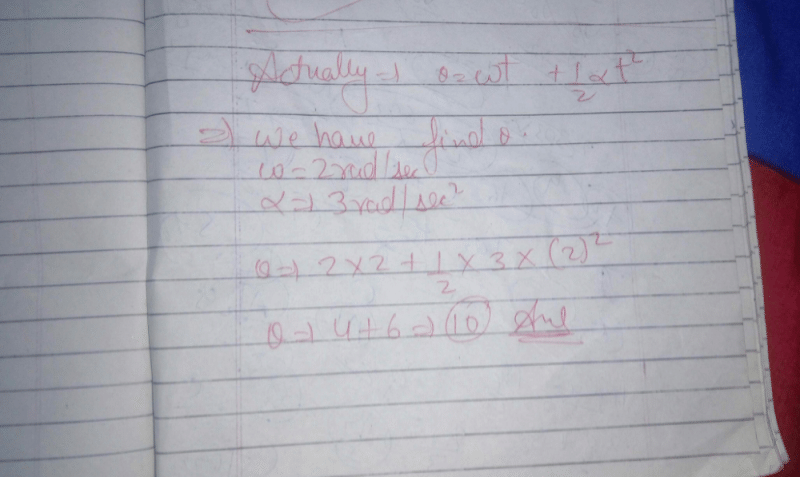 Actually ⇒ θ = ωt + 1/2 αt²
⇒) We have find θ.
ω = 2 rad/sec
α ⇒ 3 rad/sec²
θ ⇒ 2×2 + 1/2 × 3 × (2)²
θ ⇒ 4+6 ⇒ 10 Ans